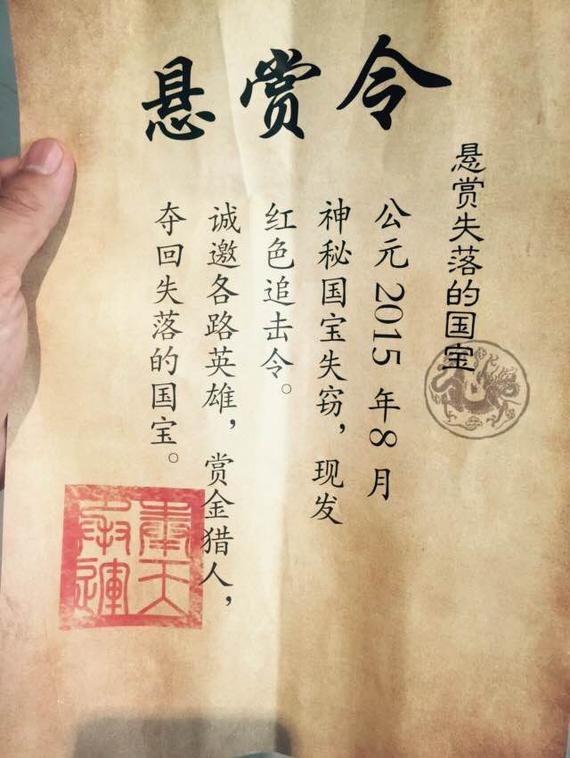 悬赏令
悬赏失落的国宝
公元2015年8月
神秘国宝失窃，现发
红色追击令。
诚邀各路英雄，赏金猎人，
夺回失落的国宝。
奉天
承运